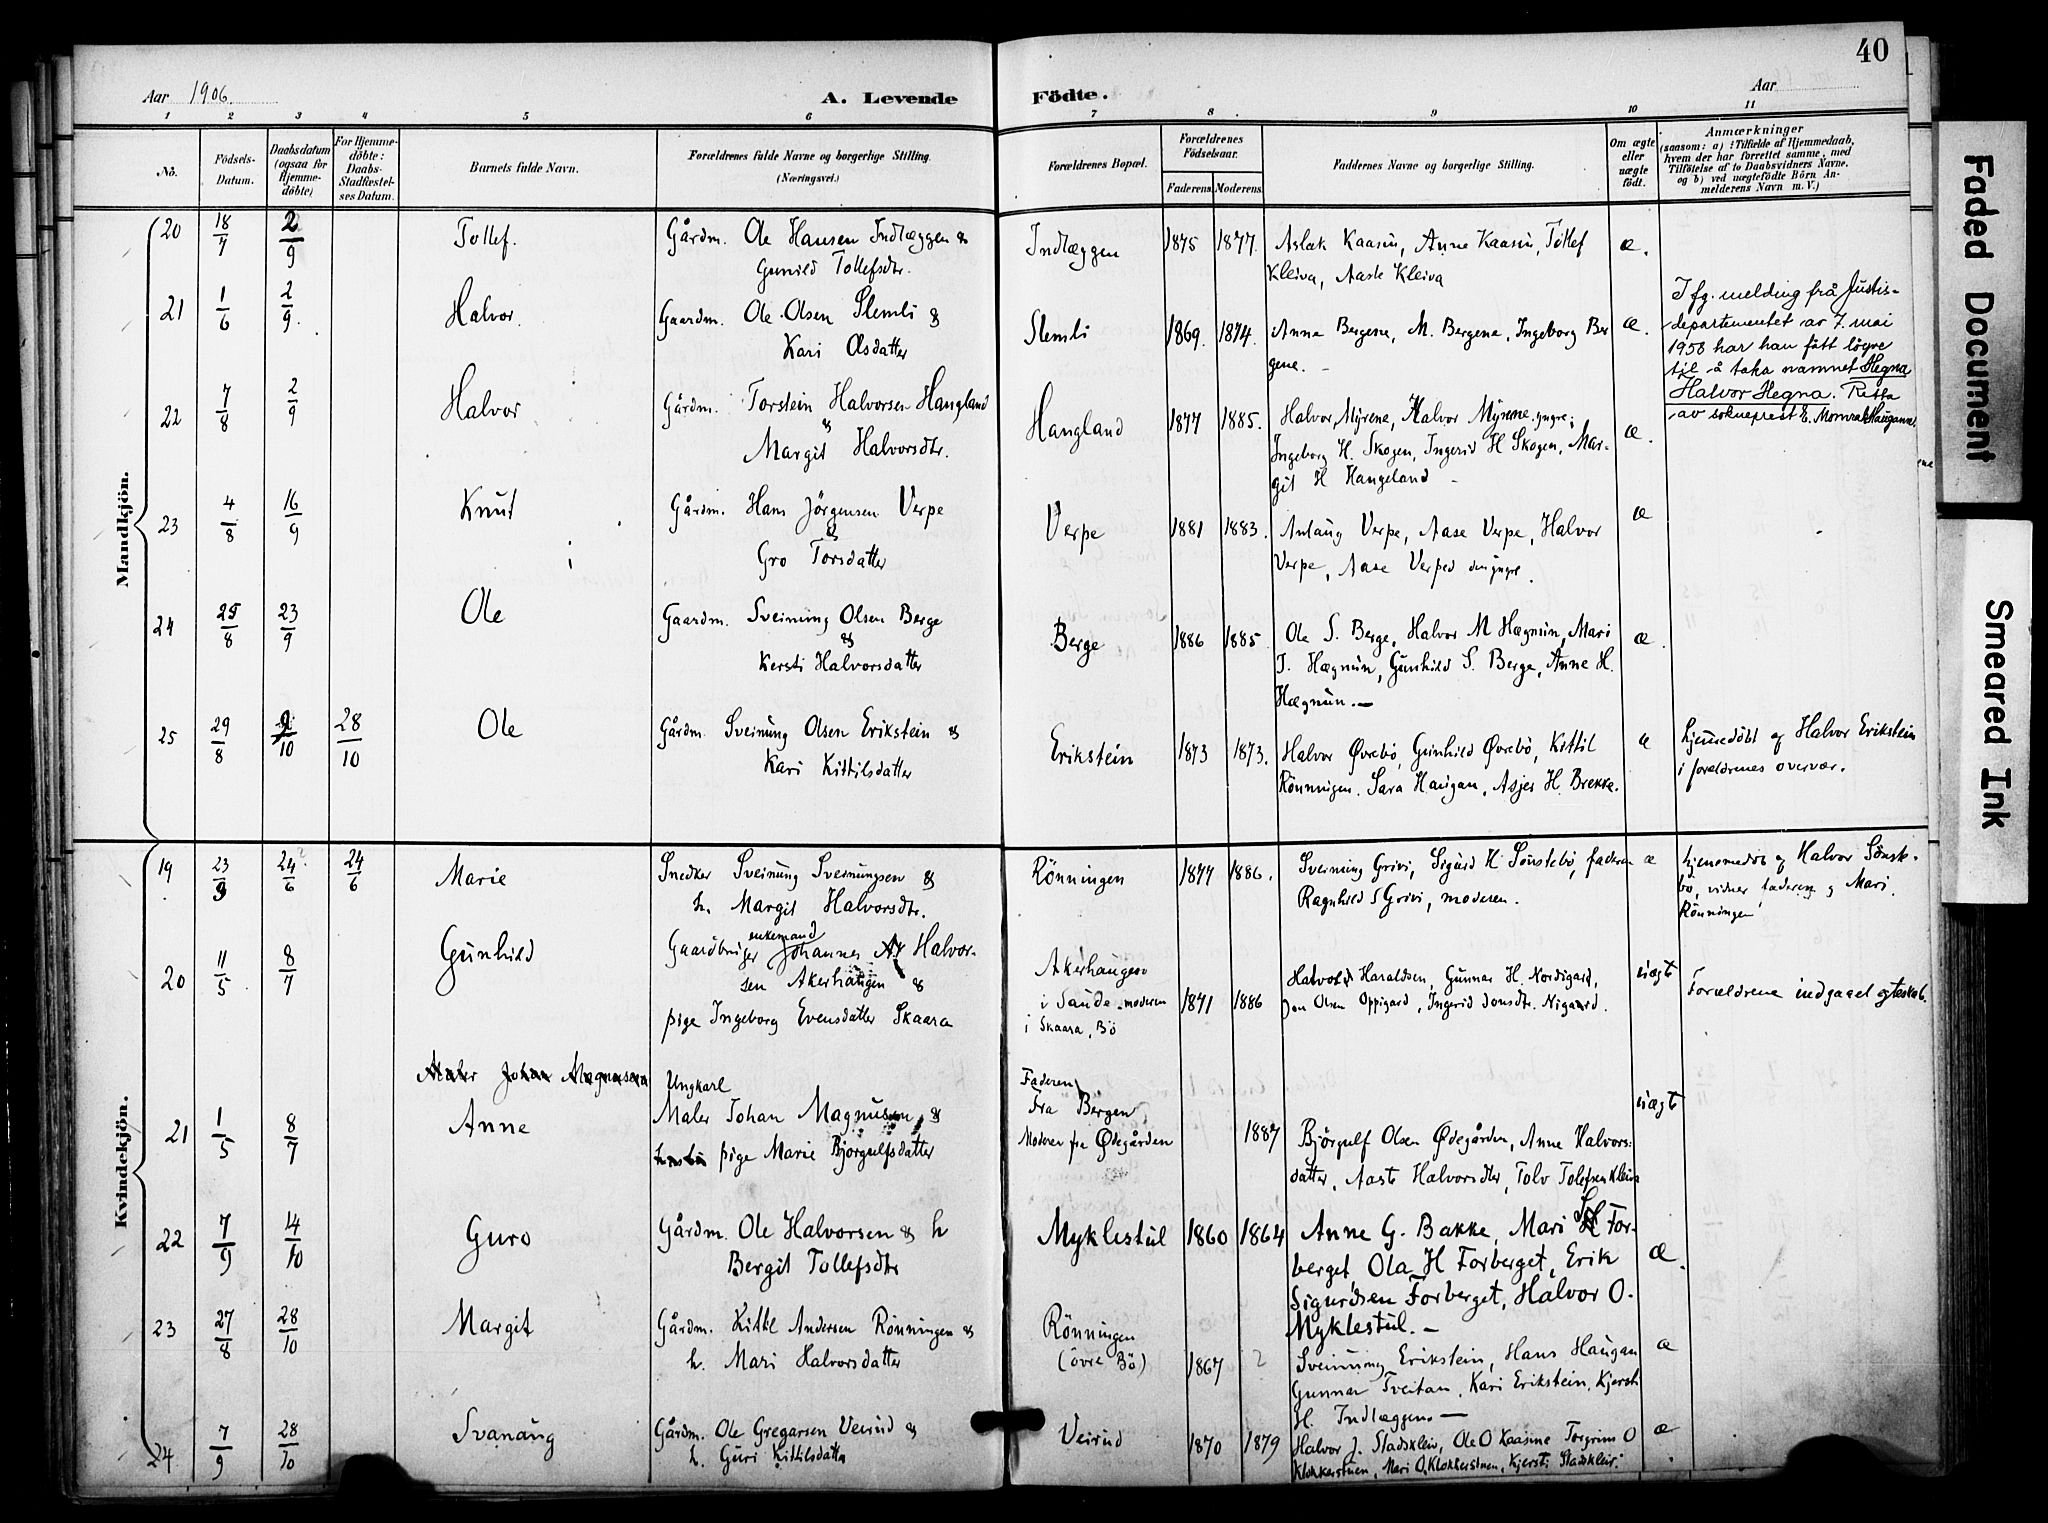 40
Aar 1906.
A. Levende Födte.
Aar
1 2 3 4 5 6 7 8 9 10 11
No.
Födsels-Datum.
Daabsdatum (ogsaa for Hjemmedöbte)
For Hjemmedöbte: Daabs-Stadfæstelses Datum.
Barnets fulde Navn.
Forældrenes fulde Navne og borgerlige Stilling. (Næringsvei.)
Forældrenes Bopæl.
Forældrenes Födselsaar.
Faderens. Moderens.
Faddernes Navne og borgerlige Stilling.
Om ægte eller uægte födt.
Anmærkninger
(saasom: a) i Tilfælde af Hjemmedaab, hvem der har forrettet samme, med Tilföielse af to Daabsvidners Navne. og b) ved uægtefödte Börn Anmelderens Navn m. V.)
Mandkjön.
20 18/7 2/9 Tollef. Gårdm. Ole Hansen Indlæggen &
Gunild Tollefsdtr.
Indlæggen 1875 1877. Aslak Kaasin, Anne Kaasin, Tollef
Kleiva, Aaste Kleiva
æ.
21 1/6 2/9. Halvor. Gaardm. Ole Olsen Slemli &
Kari Olsdatter
Slemli 1869. 1874. Anne Bergene, M. Bergene, Ingeborg Ber
gene. -
æ.
I fg. melding frå Justis-
departementet av 7. mai
1958 har han fått løyve
til å taka namnet Hegna
Halvor Hegna. Retta
av sokneprest E.
22 7/8 2/9 Halvor Gårdm. Torstein Halvorsen Haugland
& Margit Halvorsdtr.
Haugland 1877 1885. Halvor Myrene, Halvor Myrene, yngre;
Ingeborg H. Skogen, Ingerid H Skogen, Mar-
git H Haugeland -
æ.
23 4/8 16/9 Knut Gårdm. Hans Jörgensen Verpe
&
Gro Torsdatter
Verpe 1881 1883. Anlaug Verpe, Aase Verpe, Halvor
Verpe, Aase Verpe den yngre.
æ
24 25/8 23/9 Ole Gaardm. Sveinung Olsen Berge
&
Kersti Halvorsdatter
Berge 1886 1885. Ole S. Berge, Halvor M Hægnin, Mari
T. Hægnin, Gunhild S. Berge, Anne H.
Hægnin. -
æ.
25 29/8 2/10 28/10 Ole Gårdm. Sveinung Olsen Erikstein &
Kari Kittilsdatter
Erikstein 1873 1873. Halvor Øvrebö, Gunhild Øvrebö, Kittil
Rönningen. Sara Haugan, Asjer H. Brekke.
æ
hjemmedöbt af Halvor Erikstein
i foreldrenes overvær.
Kvindekjön.
19 23/3 24/6 24/6 Marie Snedker Sveinung Sveinungsen &
h. Margit Halvorsdtr.
Rönningen 1877 1886. Sveinung Grivi, Sigurd H Sönstebö, faderen
Ragnhild S Grivi, moderen.
æ
hjemmedöbt af Halvor Sönste-
bö, vidner faderen og Mari
Rönningen
20 11/5 8/7 Gunhild Gaardbruger enkemand Johannes Halvor-
sen Akerhaugen &
pige Ingeborg Evensdatter Skaara
Akerhaugen
i Saude, moderen
i Skaara, Bö
1871 1886 Halvor Haraldsen, Gunnar H. Nordigard,
Jon Olsen Oppigard, Ingerid Jonsdtr. Nigaard.
uægt
Forældrene indgaaet egteskab.
Maler Johan Magnussen
21 1/5 8/7 Anne Ungkarl
Maler Johan Magnusen &
pige Marie Björgulfsdatter
Faderen
fra Bergen
Moderen fra Ødegården
1887 Björgulf Olsen Ødegården, Anne Halvors-
datter, Aaste Halvorsdter, Tolv Tolefsen Kleiva
uægt
22 7/9 14/10 Guro Gårdm. Ole Halvorsen & h
Bergit Tollefsdtr
Myklestul 1860 1864 Anne G. Bakke, Mari S For-
berget, Ola H Forberget, Erik
Sigurdsen Forberget, Halvor O.
Myklestul. -
æ.
23 27/8 28/10 Margit Gårdm. Kittil Andersen Rönningen &
h. Mari Halvorsdatter
Rönningen
(övre Bö)
1867 ? Sveinung Erikstein, Hans Haugan
Gunnar Tveitan, Kari Erikstein, Kjersti
H. Indlæggen -
æ
24 7/9 28/10 Svanaug Gårdm. Ole Gregarsen Veirud &
h. Guri Kittilsdatter
Veirud 1870 1879 Halvor J. Stadskleiv, Ole O Kaasine Torgrim O
Klokkerstuen, Mari O. Klokkerstuen, Kjersti Stadskleiv.
æ.
Faded Document
Smeared Ink